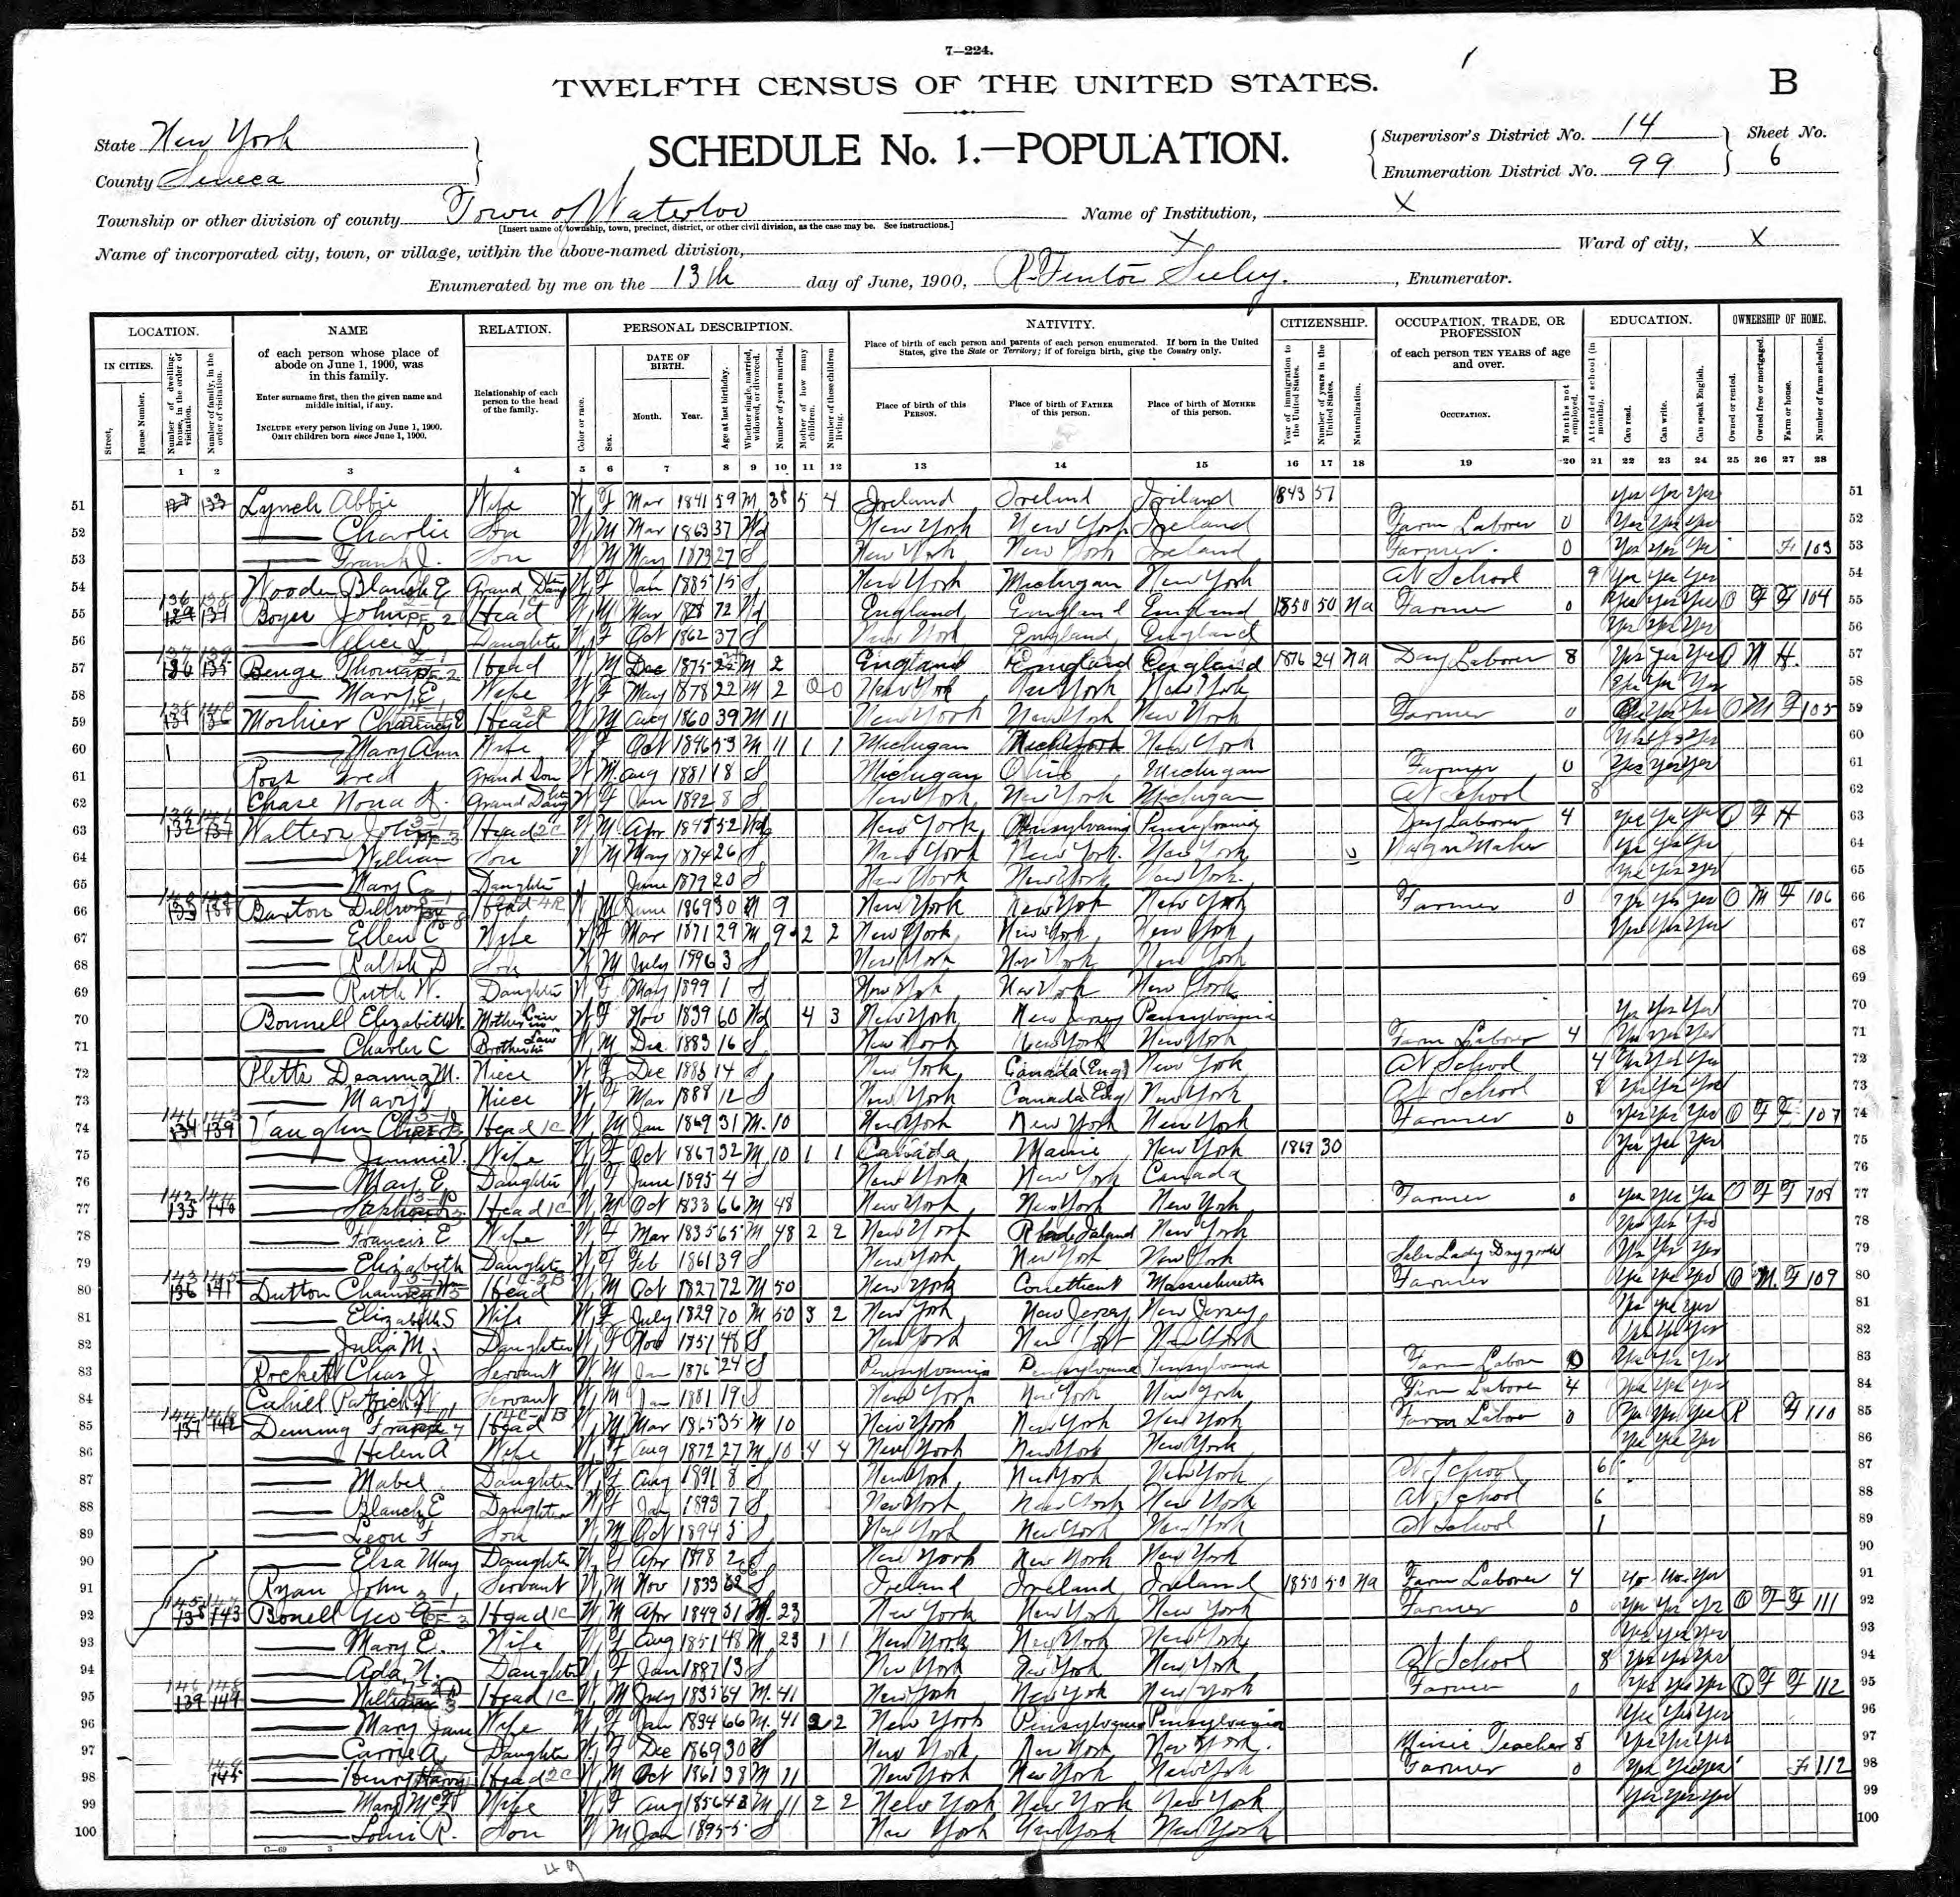 7—224.
TWELFTH CENSUS OF THE UNITED STATES.
B
SCHEDULE No. 1.—POPULATION.
State New York
County Seneca
Supervisor's District No. 14
Enumeration District No. 99
Sheet No. 6
Township or other division of county Town of Waterloo
[Insert name of township, town, precinct, district, or other civil division, as the case may be. See instructions.]
Name of Institution, X
Name of incorporated city, town, or village, within the above-named division, X
Ward of city, X
Enumerated by me on the 13th day of June, 1900, R. Fenton Seeley. , Enumerator.
LOCATION. NAME RELATION. PERSONAL DESCRIPTION. NATIVITY. CITIZENSHIP. OCCUPATION, TRADE, OR PROFESSION EDUCATION. OWNERSHIP OF HOME.
IN CITIES. Street. House Number. Number of dwelling-house, in the order of visitation. Number of family, in the order of visitation.
of each person whose place of abode on June 1, 1900, was in this family.
Enter surname first, then the given name and middle initial, if any.
INCLUDE every person living on June 1, 1900. OMIT children born since June 1, 1900.
Relationship of each person to the head of the family.
Color or race. Sex. DATE OF BIRTH. Month. Year. Age at last birthday. Whether single, married, widowed, or divorced. Number of years married. Mother of how many children. Number of these children living.
Place of birth of each person and parents of each person enumerated. If born in the United States, give the State or Territory; if of foreign birth, give the Country only.
Place of birth of this PERSON. Place of birth of FATHER of this person. Place of birth of MOTHER of this person.
Year of immigration to the United States. Number of years in the United States. Naturalization.
of each person TEN YEARS of age and over.
OCCUPATION. Months not employed.
Attended school (in months). Can read. Can write. Can speak English.
Owned or rented. Owned free or mortgaged. Farm or house. Number of farm schedule.
1 2 3 4 5 6 7 8 9 10 11 12 13 14 15 16 17 18 19 20 21 22 23 24 25 26 27 28
51 133 Lynch Abbie Wife W F Mar 1841 59 M 38 5 4 Ireland Ireland Ireland 1843 57 Yes Yes Yes 51
52 Charlie Son W M Mar 1863 37 Wd New York New York Ireland Farm Laborer 0 Yes Yes Yes 52
53 Frank J. Son W M May 1873 27 S New York New York Ireland Farmer 0 Yes Yes Yes F 103 53
54 Wooden Blanch E Grand Daughter W F Jan 1885 15 S New York Michigan New York At School 9 Yes Yes Yes 54
55 Boyer John Head W M Mar 1828 72 Wd England England England 1850 50 Na Farmer 0 Yes Yes Yes O F F 104 55
56 Alice L Daughter W F Oct 1862 37 S New York England England Yes Yes Yes 56
57 136 135 Benge Thomas Head W M Dec 1875 M 2 England England England 1876 24 Na Day Laborer 8 Yes Yes Yes O M H 57
58 Mary E. Wife W F May 1878 22 M 2 0 0 New York New York New York Yes Yes Yes 58
59 136 Moshier Head W M Aug 1860 39 M 11 New York New York New York Farmer 0 Yes Yes O M F 105 59
60 Mary Ann Wife W F Oct 1846 53 M 11 1 1 Michigan New York Yes Yes Yes 60
61 Post Fred Grand Son W M Aug 1881 18 S Michigan Ohio Michigan Farmer 0 Yes Yes Yes 61
62 Chase Nona Grand Daughter W F Jan 1892 8 S New York New York Michigan At School 8 62
63 132 137 Walters John Head W M Apr 1848 52 Wd New York Pensylvania Pensylvania Day Laborer 4 Yes Yes Yes O F H 63
64 William Son W M May 1874 26 S New York New York New York Wagon Maker Yes Yes Yes 64
65 Mary C Daughter June 1879 20 S New York New York New York Yes Yes Yes 65
66 133 138 Barton Head W M June 1869 30 M 9 New York New York New York Farmer 0 Yes Yes Yes O M F 106 66
67 Ellen C Wife W F Mar 1871 29 M 9 2 2 New York New York New York Yes Yes Yes 67
68 Ralph D Son W M July 1896 3 S New York New York New York 68
69 Ruth W. Daughter W F May 1899 1 S New York New York New York 69
70 Bonnell Elizabeth Mother in Law W F Nov 1839 60 Wd 4 3 New York New Jersey Pensylvania Yes Yes Yes 70
71 Charles C Brother in Law W M Dec 1883 16 S New York New York New York Farm Laborer 4 Yes Yes Yes 71
72 Pletts M. Niece W F Dec 1885 14 S New York Canada (Eng) New York At School 4 Yes Yes Yes 72
73 Mary Niece W F Mar 1888 12 S New York Canada Eng New York At School 8 Yes Yes Yes 73
74 134 139 Vaughn Head W M Jan 1869 31 M 10 New York New York New York Farmer 0 Yes Yes Yes O F F 107 74
75 Jennie V. Wife W F Oct 1867 32 M 10 1 1 Canada Maine New York 1869 30 Yes Yes Yes 75
76 May E. Daughter W F June 1895 4 S New York New York Canada 76
77 135 140 Head W M Oct 1833 66 M 48 New York New York New York Farmer 0 Yes Yes Yes O F F 108 77
78 Francis E Wife W F Mar 1835 65 M 48 2 2 New York Rhode Island New York Yes Yes Yes 78
79 Elizabeth Daughter W F Feb 1861 39 S New York New York New York Sales Lady Dry goods Yes Yes Yes 79
80 136 141 Dutton Head W M Oct 1827 72 M 50 New York Conetticut Massachusetts Farmer Yes Yes Yes O M F 109 80
81 Elizabeth S Wife W F July 1829 70 M 50 3 2 New York New Jersey New Jersey Yes Yes Yes 81
82 Julia M. Daughter W F Nov 1851 48 S New York New York New York Yes Yes Yes 82
83 Rockett Chas J Servant W M Jan 1876 24 S Pensylvania Pensylvania Pensylvania Farm Labor 0 Yes Yes Yes 83
84 Cahill Patrick W Servant W M Jan 1881 19 S New York New York New York Farm Laborer 4 Yes Yes Yes 84
85 137 142 Deming Frank Head W M Mar 1865 35 M 10 New York New York New York Farm Laborer 0 Yes Yes Yes R F 110 85
86 Helen A Wife W F Aug 1872 27 M 10 4 4 New York New York New York Yes Yes Yes 86
87 Mabel Daughter W F Aug 1891 8 S New York New York New York At School 6 87
88 Blanch E Daughter W F Jan 1893 7 S New York New York New York At School 6 88
89 Leon F Son W M Oct 1894 5 S New York New York New York At School 1 89
90 Elsa May Daughter W F Apr 1898 2 S New York New York New York 90
91 Ryan John Servant W M Nov 1839 S Ireland Ireland Ireland 1850 50 Na Farm Laborer 4 No No Yes 91
92 138 143 Bonell Geo Head W M Apr 1849 51 M 23 New York New York New York Farmer 0 Yes Yes Yes O F F 111 92
93 Mary E. Wife W F Aug 1851 48 M 23 1 1 New York New York New York Yes Yes Yes 93
94 Ada N. Daughter W F Jan 1887 13 S New York New York New York At School 8 Yes Yes Yes 94
95 139 144 William Head W M July 1835 64 M 41 New York New York New York Farmer 0 Yes Yes Yes O F F 112 95
96 Mary Jane Wife W F Jan 1834 66 M 41 2 2 New York Pensylvania Pensylvania Yes Yes Yes 96
97 Carrie A Daughter W F Dec 1869 30 S New York New York New York Music Teacher 8 Yes Yes Yes 97
98 145 Henry Head W M Oct 1861 38 M 11 New York New York New York Farmer 0 Yes Yes Yes F 112 98
99 Mary Wife W F Aug 1856 43 M 11 2 2 New York New York New York Yes Yes Yes 99
100 Louis R. Son W M Jan 1895 5 S New York New York New York 100
C—69 3
49